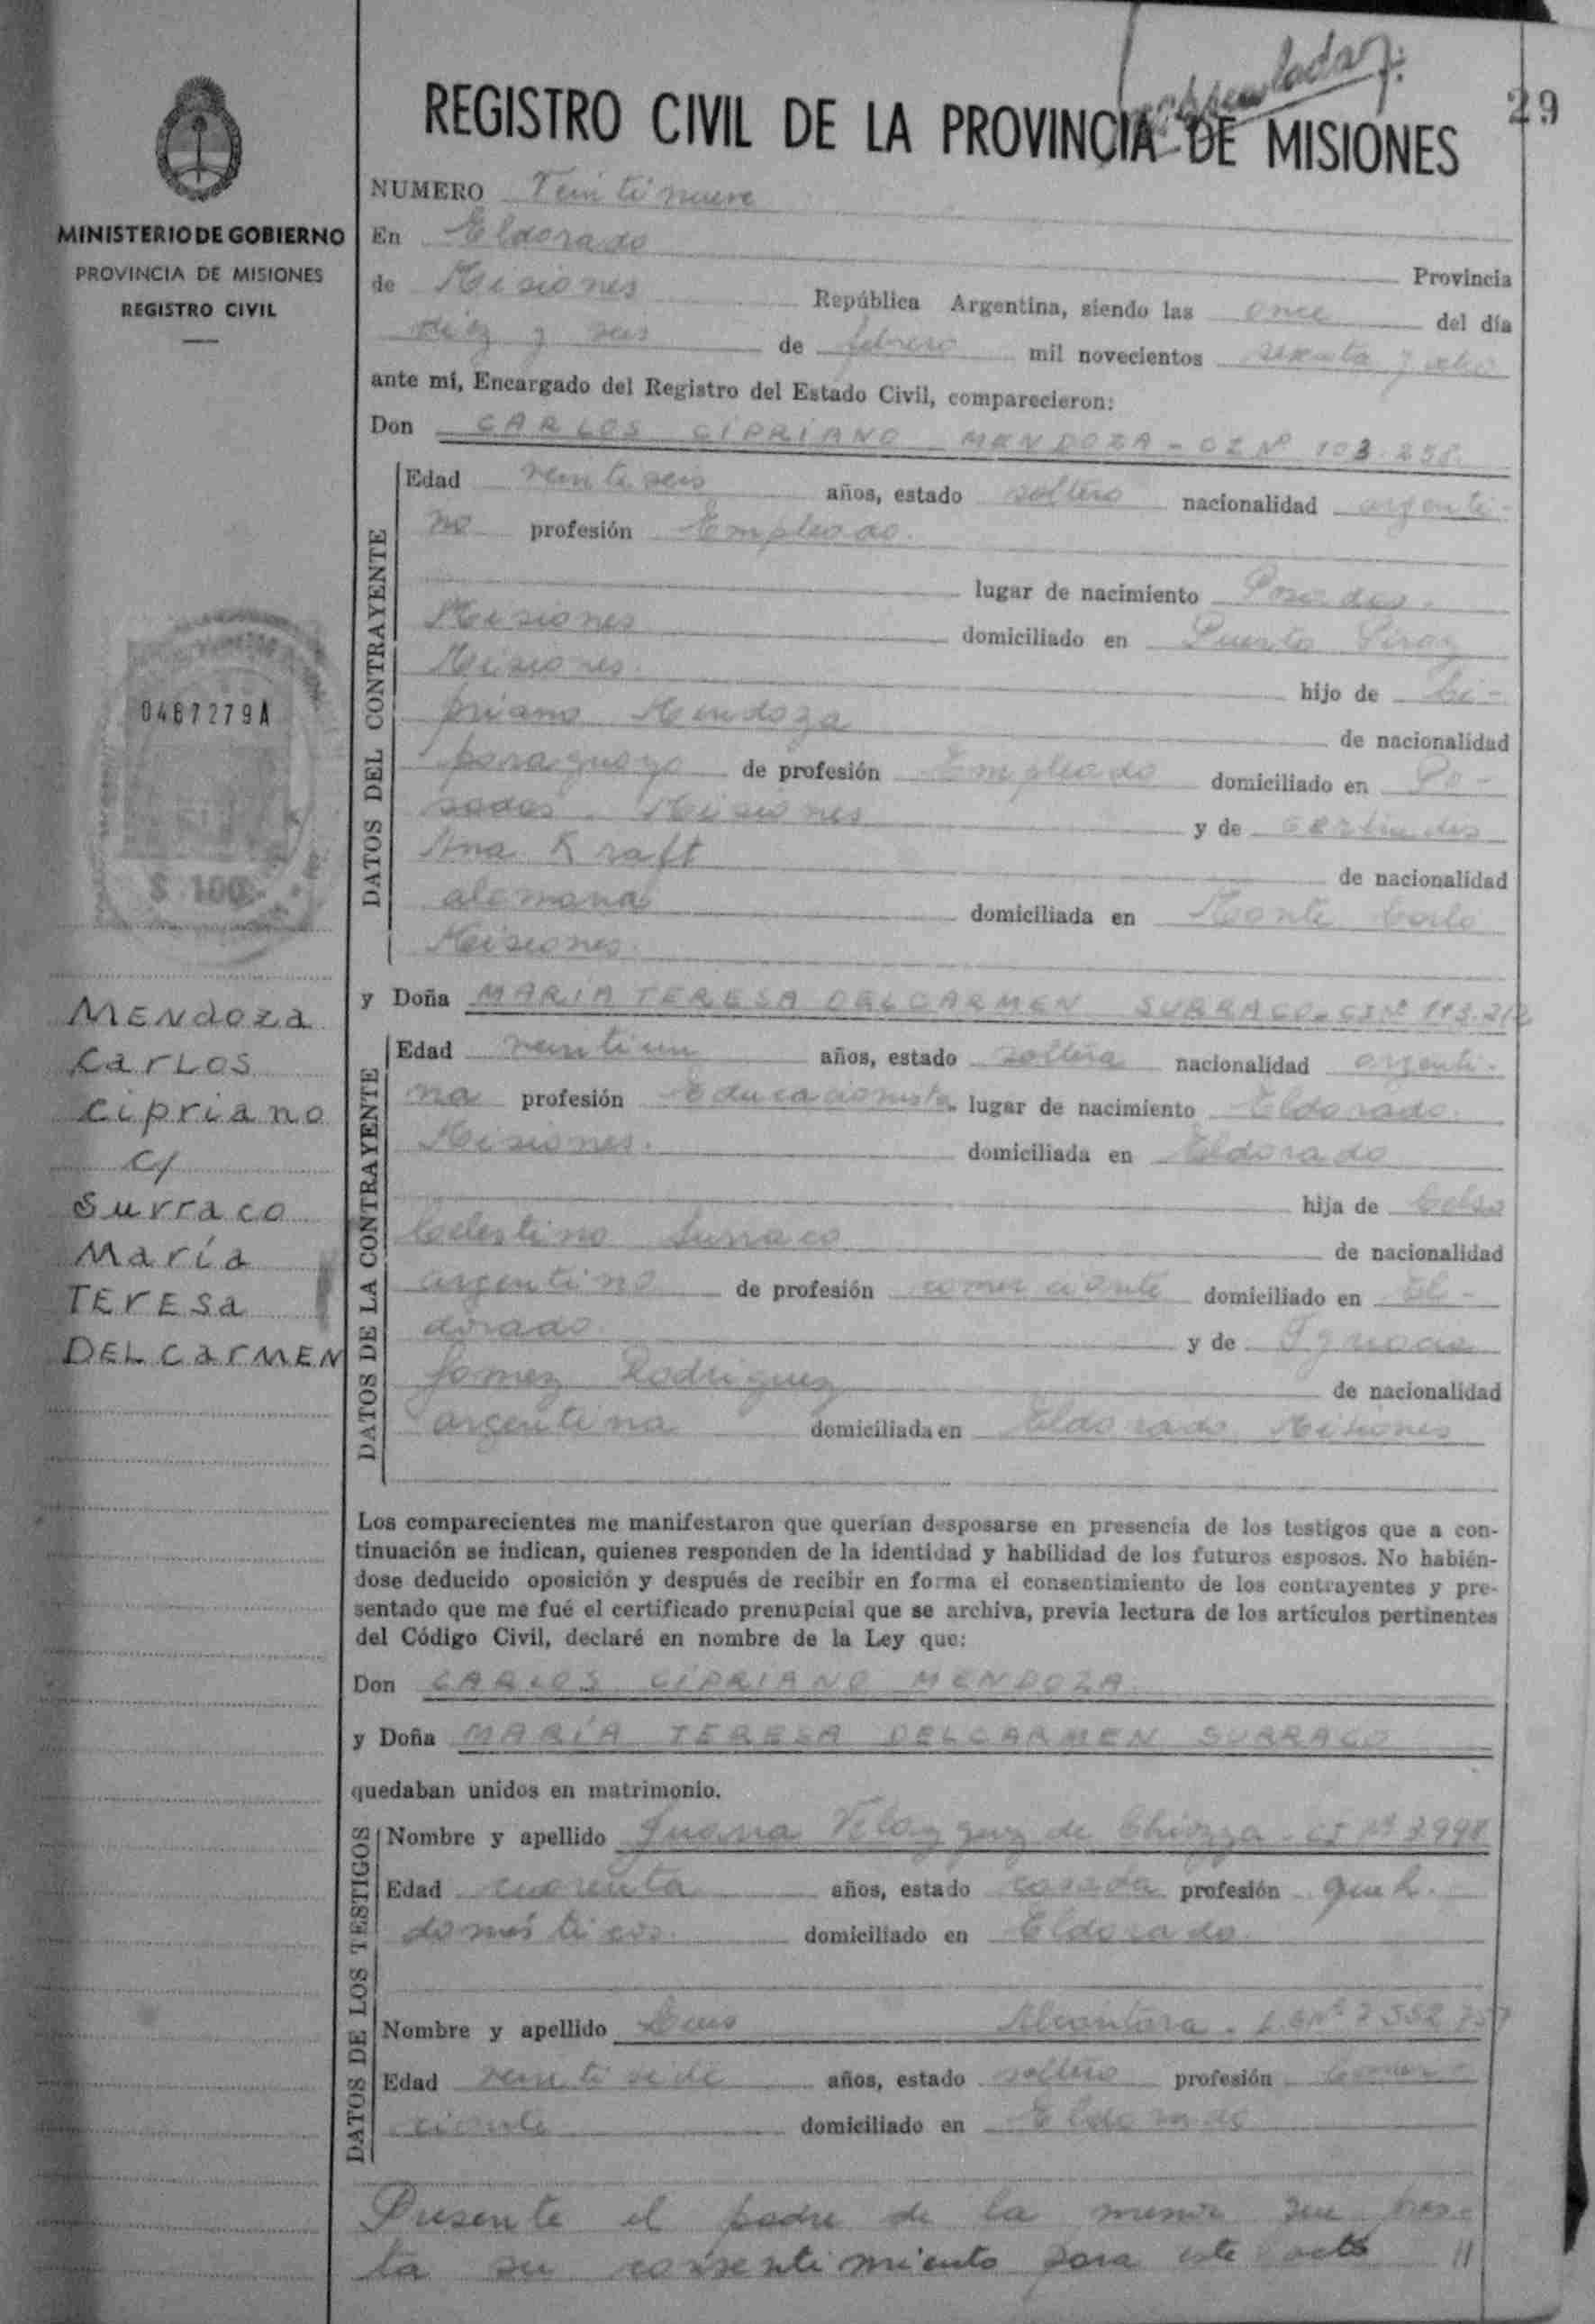 29
REGISTRO CIVIL DE LA PROVINCIA DE MISIONES
MINISTERIO DE GOBIERNO
PROVINCIA DE MISIONES
REGISTRO CIVIL
0467279A
$ 100.-
MENdoza
CarLOS
cipriano
c/
Surraco
María
TEresa
DEL carMEN
NUMERO Veintinueve
En Eldorado
Provincia
de Misiones República Argentina, siendo las once del día
diez y seis de febrero mil novecientos sesenta y ocho
ante mí, Encargado del Registro del Estado Civil, comparecieron:
Don CARLOS CIPRIANO MENDOZA - CI Nº 103.258.
DATOS DEL CONTRAYENTE
Edad veintiseis años, estado soltero nacionalidad argenti-
no profesión Empleado.
lugar de nacimiento Posadas.
Misiones domiciliado en Puerto Piray
Misiones. hijo de Ci-
priano Mendoza de nacionalidad
paraguaya de profesión Empleado domiciliado en Po-
sadas. Misiones y de Gertrudis
Ana Kraft de nacionalidad
alemana domiciliada en Monte Carlo
Misiones.
y Doña MARIA TERESA DEL CARMEN SURRACO - CI Nº 113.212
DATOS DE LA CONTRAYENTE
Edad veintiun años, estado soltera nacionalidad argenti-
na profesión Educacionista lugar de nacimiento Eldorado.
Misiones. domiciliada en Eldorado
hija de Celso
Celestino Surraco de nacionalidad
argentino de profesión comerciante domiciliado en El-
dorado y de Ignacia
Gomez Rodriguez de nacionalidad
argentina domiciliada en Eldorado Misiones
Los comparecientes me manifestaron que querían desposarse en presencia de los testigos que a con-
tinuación se indican, quienes responden de la identidad y habilidad de los futuros esposos. No habién-
dose deducido oposición y después de recibir en forma el consentimiento de los contrayentes y pre-
sentado que me fué el certificado prenupcial que se archiva, previa lectura de los artículos pertinentes
del Código Civil, declaré en nombre de la Ley que:
Don CARLOS CIPRIANO MENDOZA
y Doña MARÍA TERESA DEL CARMEN SURRACO
quedaban unidos en matrimonio.
DATOS DE LOS TESTIGOS
Nombre y apellido Juana Velazquez de Chiozza - CI Nº 3998
Edad cuarenta años, estado casada profesión queh.
domésticos. domiciliado en Eldorado
Nombre y apellido Luis Alcántara - L.E Nº 7552757
Edad veintisiete años, estado soltero profesión Comer-
ciante domiciliado en Eldorado
Presente el padre de la menor que pres-
ta su consentimiento para este acto //